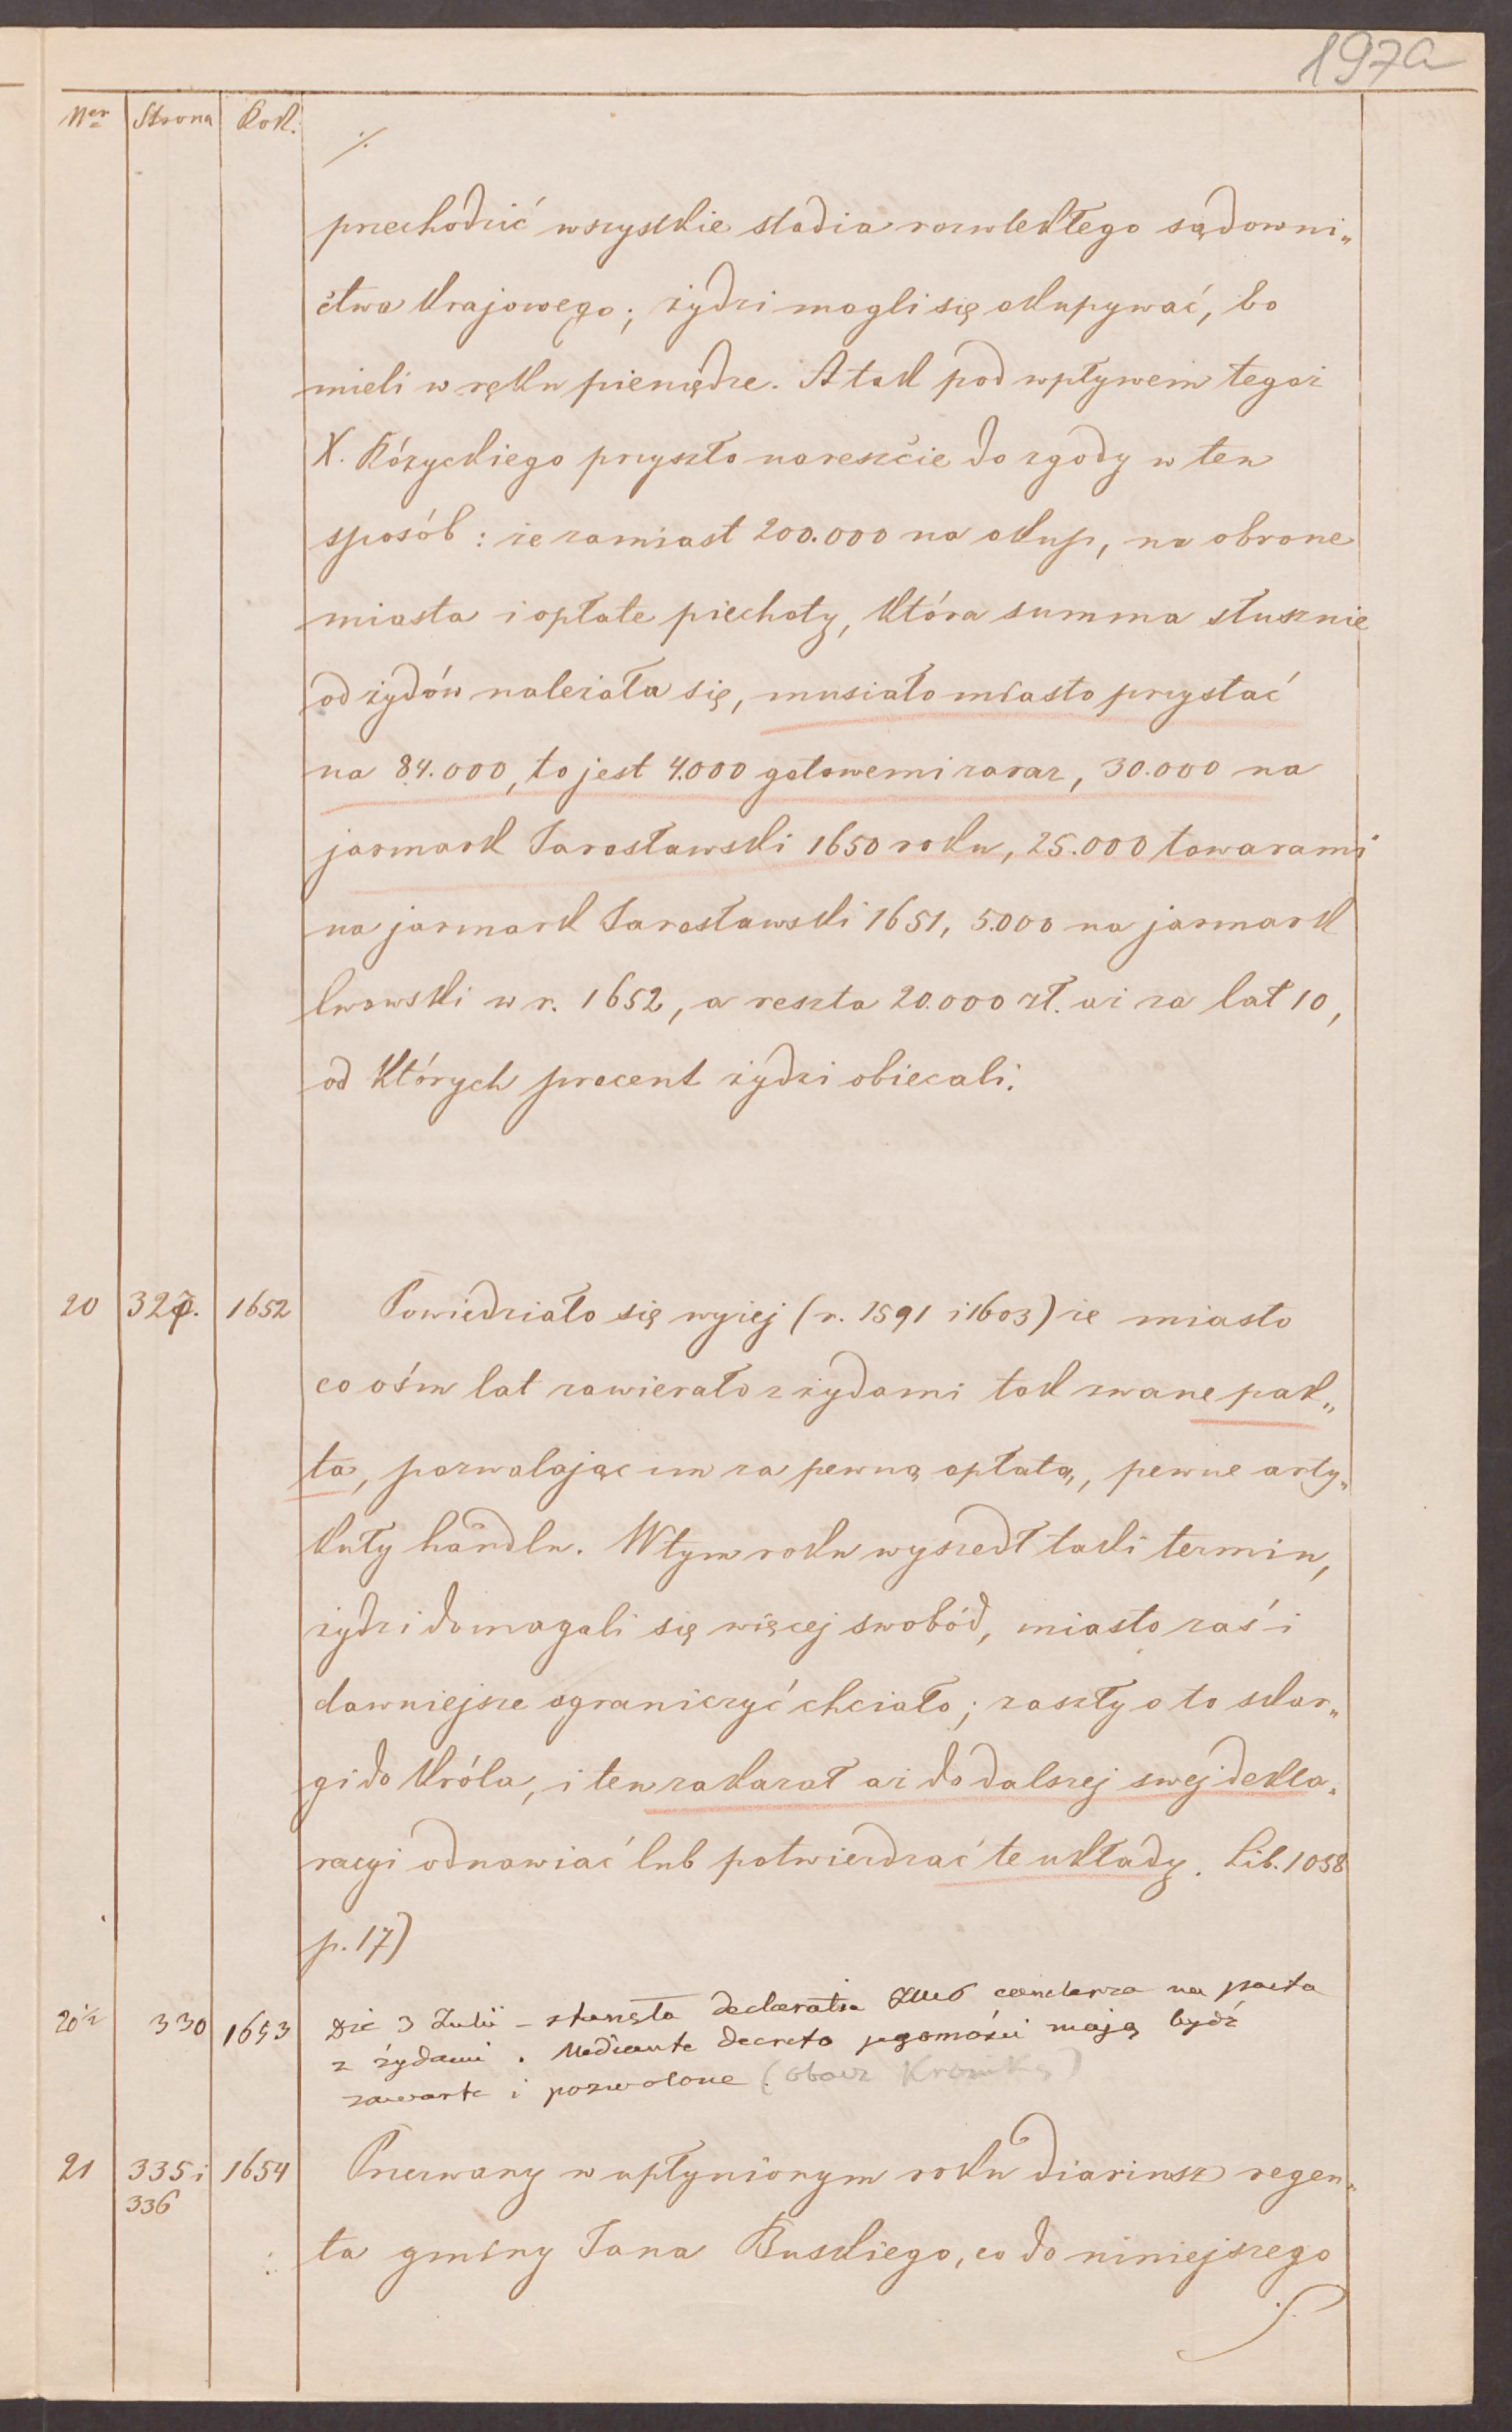 197a
Ner Strona Rok.
./.
przechodzić wszystkie stadia rozwlekłego sądowni„
ctwa krajowego; żydzi mogli się okupywać, bo
mieli w ręku pieniędze. A tak pod wpływem tegoż
X. Różyckiego przyszło nareszcie do zgody w ten
sposób: że zamiast 200.000 na okup, na obrone
miasta i opłate piechoty, która summa słusznie
od żydów należała się, musiało miasto przystać
na 84.000, to jest 4.000 gotowemi zaraz, 30.000 na
jarmark Jarosławski 1650 roku, 25.000 towarami
na jarmark Jarosławski 1651, 5.000 na jarmark
lwowski w r. 1652, a reszta 20.000 zł. aż za lat 10,
od których procent żydzi obiecali.
20 327. 1652 Powiedziało się wyżej (r. 1591 i 1603) że miasto
co ośm lat zawierało z żydami tak zwane pak„
ta, pozwalając im za pewną opłatą, pewne arty„
kuły handlu. W tym roku wyszedł taki termin,
żydzi domagali się więcej swobód, miasto zaś i
dawniejsze ograniczyć chciało; zaszły o to skar„
gi do króla, i ten zakazał aż do dalszej swej dekla„
racyi odnawiać lub potwierdzać te układy. Lib. 1058
p. 17)
20 1/2 330 1653 Die 3 Julii – stanęła declaratia canclerza na pacta
z żydami. Mediante decreto jegomości mają bydź
zawarte i pozwolone (obacz Kronikę)
21 335 i 1654 Przerwany w upłynionym roku diariusz regen„
336
ta gminy Jana Buskiego, co do niniejszego
./.